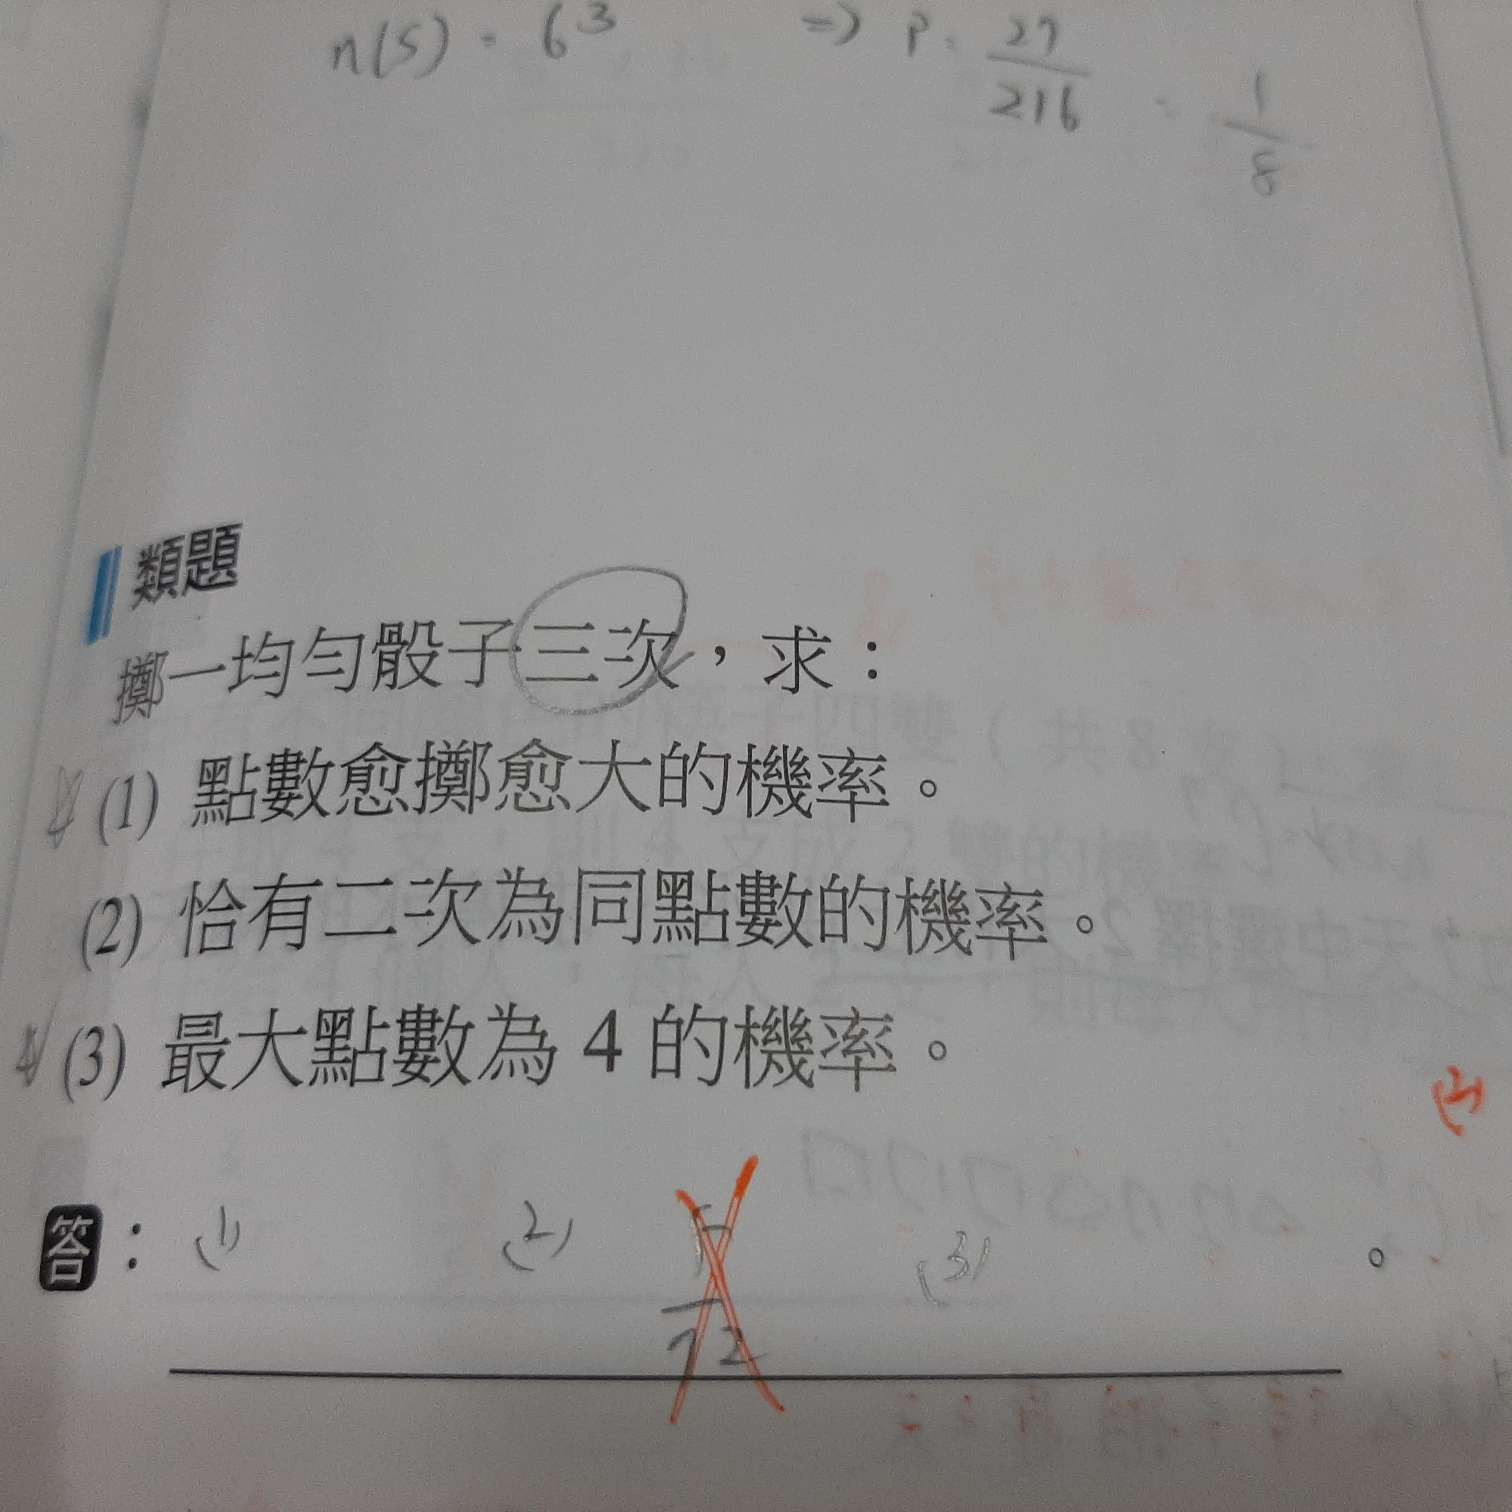 n(S) = 6³ ⇒ P = 27/216 = 1/8
類題
擲一均勻骰子三次，求：
(1) 點數愈擲愈大的機率。
(2) 恰有二次為同點數的機率。
(3) 最大點數為 4 的機率。
答：(1) (2) 5/72 (3) 。